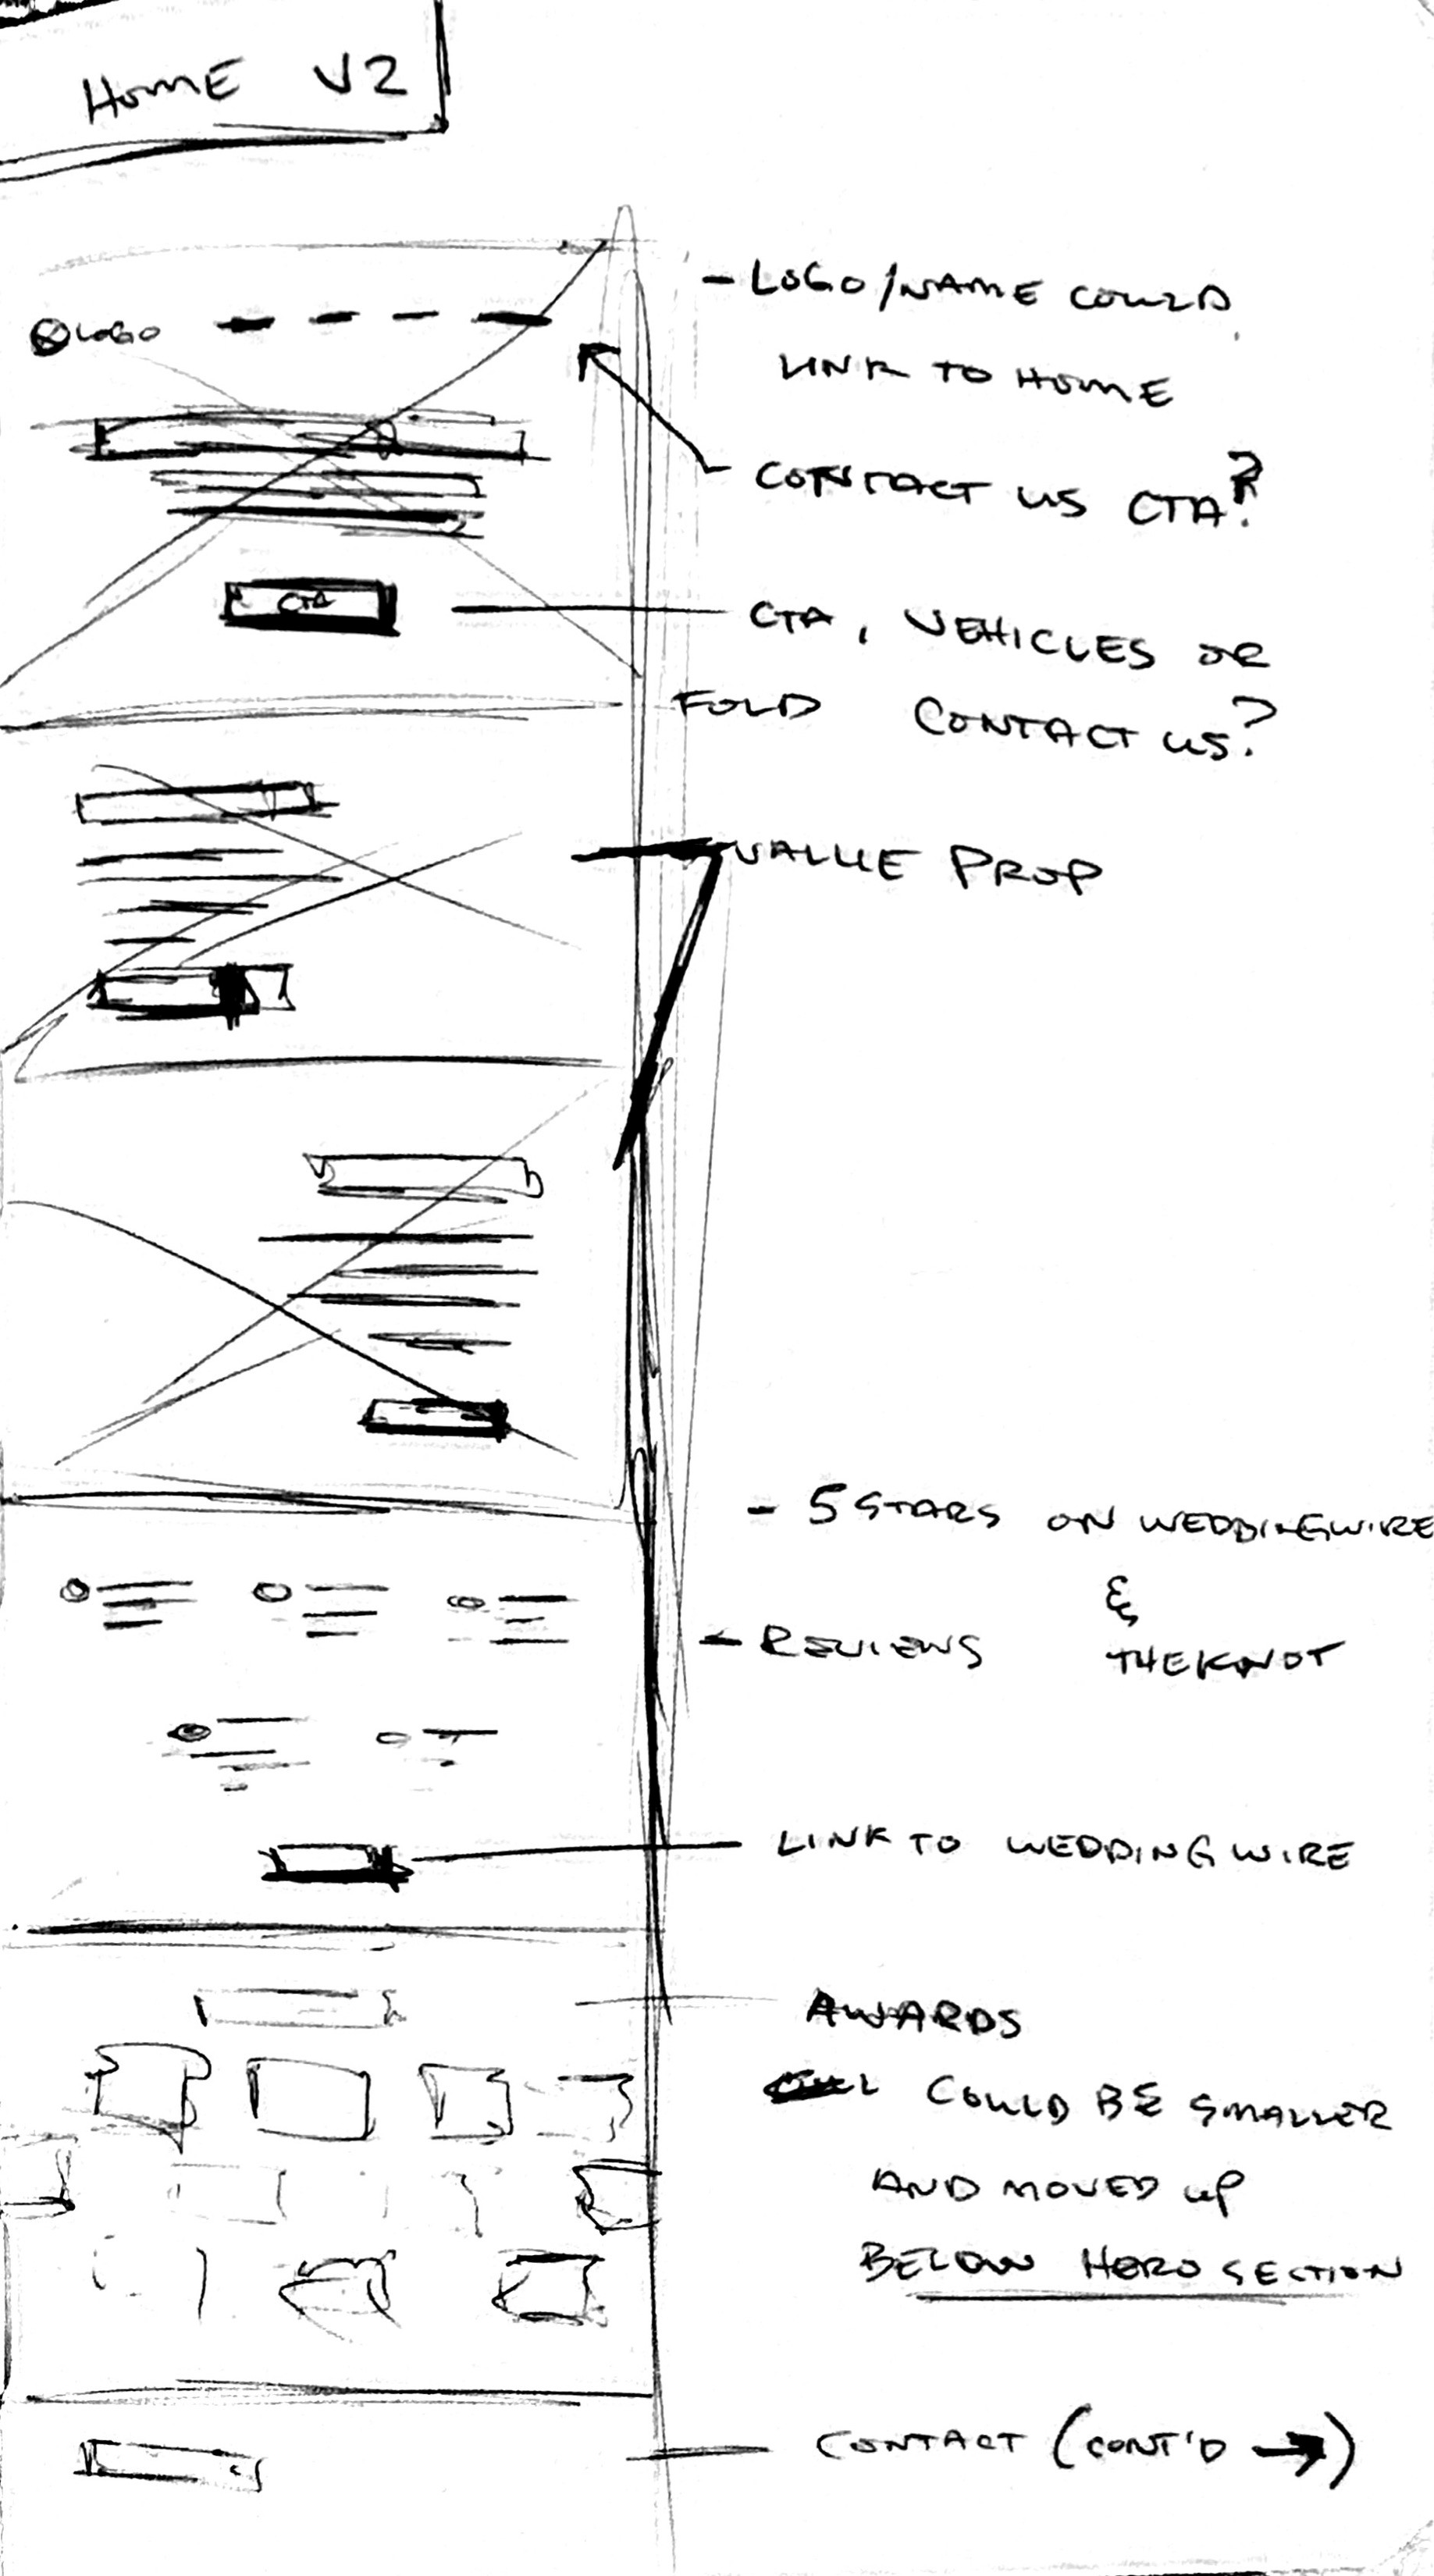 HOME V2
- LOGO/NAME COULD
LINK TO HOME
LOGO
CONTACT US CTA?
CTA
CTA, VEHICLES OR
FOLD CONTACT US?
VALUE PROP
- 5 STARS ON WEDDINGWIRE
&
- REVIEWS THEKNOT
LINK TO WEDDINGWIRE
AWARDS
COULD BE SMALLER
AND MOVED UP
BELOW HERO SECTION
CONTACT (CONT'D →)